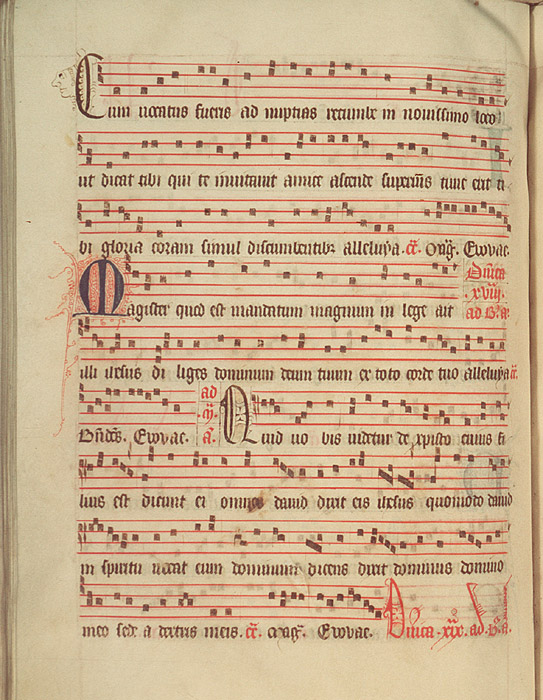 Cum uocatus fueris ad nuptias recumbe in nouissimo loco
ut dicat tibi qui te inuitauit amice ascende superius tunc erit ti
bi gloria coram simul discumbentibus alleluya. Euovae.
Dnica
xviii.
Magister quod est mandatum magnum in lege ait
ad
illi ihesus di liges dominum deum tuum ex toto corde tuo alleluya
ad
Euovae. Quid uo bis uidetur de xpisto cuius fi
lius est dicunt ei omnes dauid dixit eis ihesus quomodo dauid
in spiritu uocat eum dominum dicens dixit dominus domino
meo sede a dextris meis. Euovae. Dnica .xix. ad